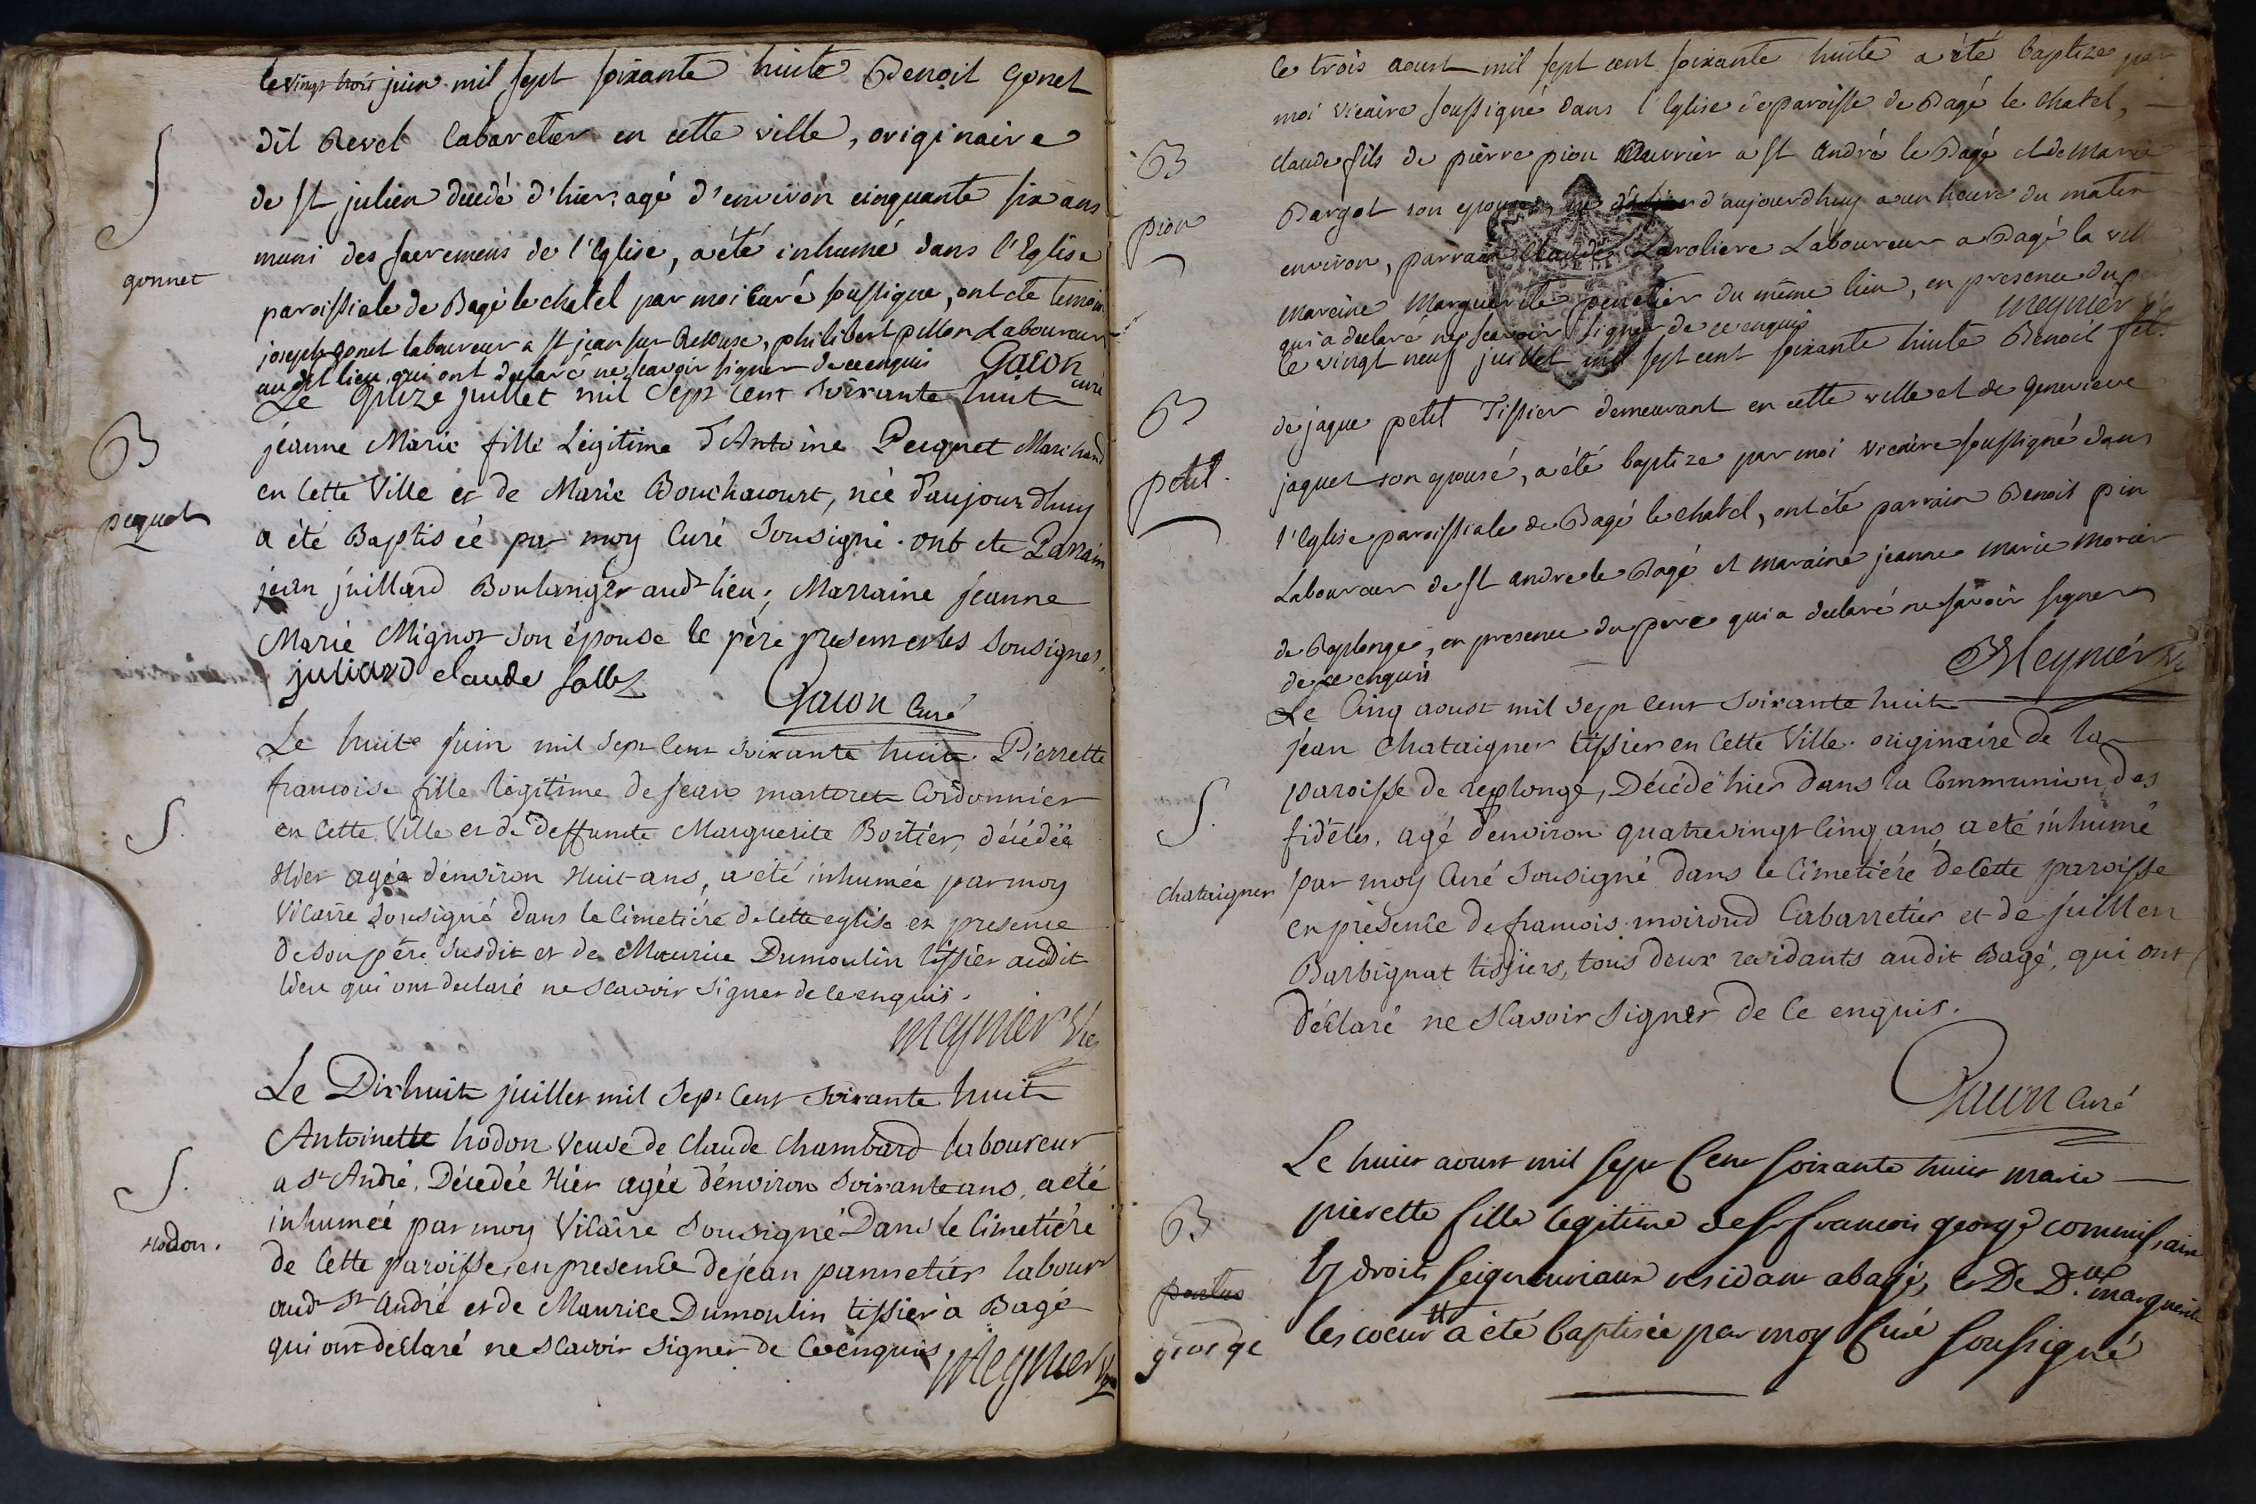 le vingt trois juin mil sept soixante huite Benoit gonet
dit Revel Cabaretier en cette ville, originaire
de st julien decédé d'hier agé d'environ cinquante six ans
S
muni des sacremens de l'Eglise, a été inhumé dans l'Eglise
gonnet
paroissiale de Bagé le chatel par moi curé soussigné, ont ete temoin
joseph gonet laboureur a st jean sur Resouse, philibert pillon Laboureur
audit lieu qui ont declaré ne scavoir signer de ce enquis Gacon curé
Le juillet mil sept cent soixante huit
B
jeanne Marie fille Légitime d'Antoine Peuquet Marchand
en cette Ville et de Marie Bouchacourt, née d'aujourdhuy
pequet
a été Baptisée par moy Curé Sousigné. ont ete Parrain
jean juillard Boulanger audt lieu, Marraine jeanne
Marie Mignot son épouse le père present et les sousignés.
juliard claude sallez
Gacon Curé
Le huite juin mil sept cent soixante huite Pierrette
francoise fille légitime de jean martoret Cordonnier
S.
en cette Ville et de deffunte Marguerite Bottier, décédée
Hier agée d'environ Huit ans, a été inhumée par moy
Vicaire sousigné dans le Cimetiére de cette eglise en presence
de son père susdit et de Maurice Dumoulin tissier audit
lieu qui ont declaré ne scavoir signer de ce enquis.
meynier Vic
Le Dixhuit juillet mil sept cent soixante huit
Antoinette hodon veuve de Claude Chambard laboureur
S.
a st André, Décedée Hier agée d'environ soixante ans, a été
inhumée par moy Vicaire sousigné Dans le Cimetiére
Hodon.
de cette paroisse, en presence de jean pannetier labour
audt st andré et de Maurice Dumoulin tissier à Bagé
qui ont declaré ne scavoir signer de ce enquis Meynier Vic
le trois aoust mil sept cent soixante huite a été baptize par
moi vicaire soussigné dans l'Eglise de paroisse de Bagé le chatel,
B
claude fils de pierre pion ouvrier a st andré le Bagé et de Marie
pion
Bargot son epouse, né d'aujourdhuy a un heure du matin
environ, parrain Claude Laroliere Laboureur a Bagé la ville
mareine Marguerite penetier du même lieu, en presence du
qui a declaré ne scavoir signer de ce enquis meynier
le vingt neuf juillet mil sept cent soixante huite Benoit fils
B
de jaque petit Tissier demeurant en cette ville et de Genevieve
petit.
jaquet son epousé, a été baptize par moi vicaire soussigné dans
l'Eglise paroissiale de Bagé le chatel, ont été parrain Benoit pin
Laboureur de st andre le Bagé et maraine jeanne marie morier
de Replonge, en presence du pere qui a declaré ne savoir signer
de ce enquis Meynier Vic
Le Cinq aoust mil sept cent soixante huit
jean Chataigner tissier en cette Ville. originaire de la
paroisse de replonge, Décédé hier dans la Communion des
S.
fidéles, agé d'environ quatrevingt cinq ans a eté inhumé
Chataigner
par moy Curé sousigné dans le Cimetiére de cette paroisse
en présence de francois moirond Cabarretier et de juillen
Barbignat tissiers, tous deux residants audit Bagé, qui ont
déclaré ne scavoir signer de ce enquis.
Gacon Curé
Le huit aoust mil sept Cent soixante huit marie
B
pierette fille legitime de sr francois george commissaire
es droits seigneuriaux residant a bagé, et De Dlle marguerite
george
lescoeur a été baptisée par moy Curé soussigné